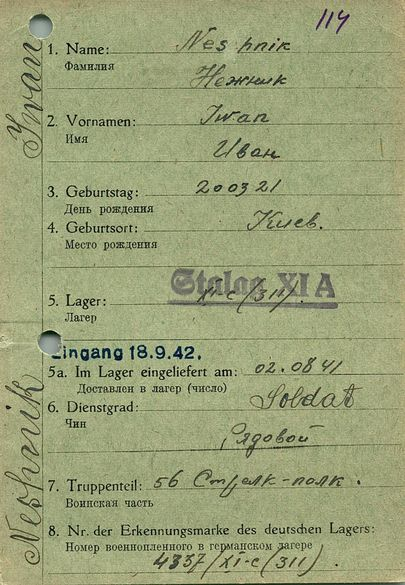 114
1. Name: Neshnik
Фамилия
Нежник
2. Vornamen: Iwan
Имя
Иван
3. Geburtstag: 200321
День рождения
4. Geburtsort: Киев.
Место рождения
Stalag XI A
5. Lager: XI-c/(311).
Лагер
Eingang 18.9.42.
5a. Im Lager eingeliefert am: 02.0841
Доставлен в лагер (число)
6. Dienstgrad: Soldat
Чин
Рядовой
7. Truppenteil: 56 Стрелк-полк.
Воинская часть
8. Nr. der Erkennungsmarke des deutschen Lagers:
Номер военнопленного в германском лагере
4337/XI-c/(311)
Neshnik Iwan